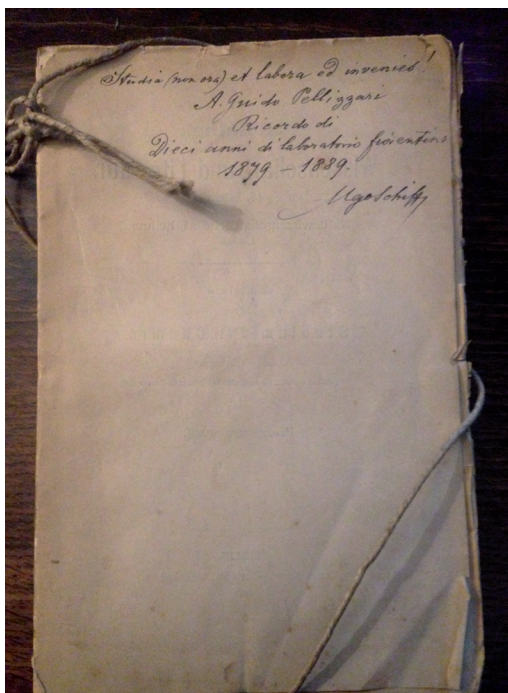 Studia (non ora) et labora ed invenies!
A. Guido Pellizzari
Ricordo di
Dieci anni di laboratorio fiorentino
1879 – 1889.
Ugo Schiff